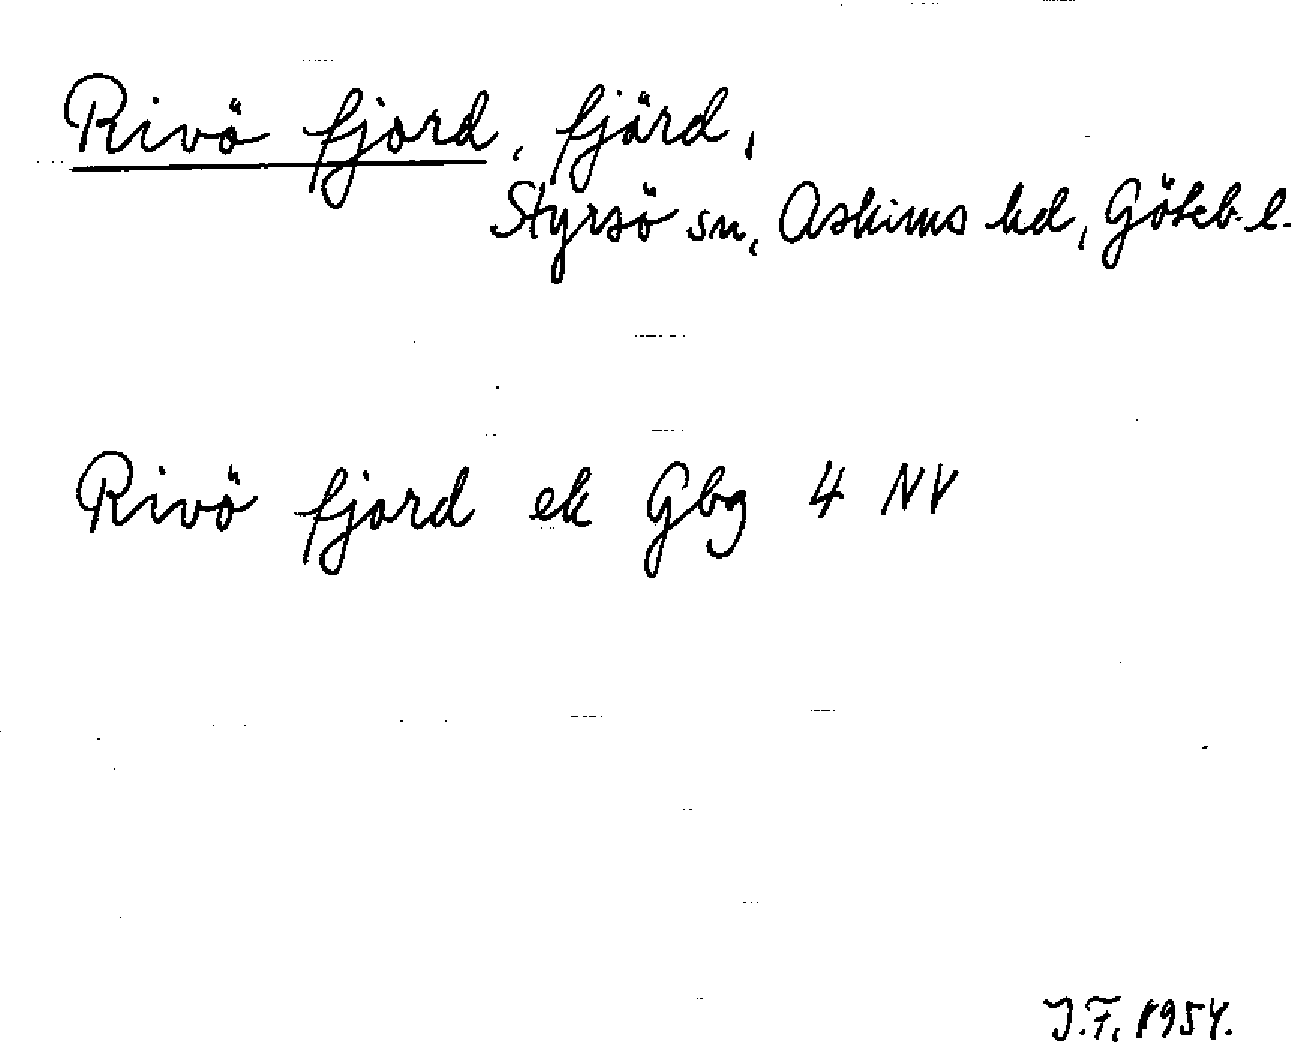 Rivö fjord, fjärd,
Styrsö sn, Askims hd, Göteb. l.
Rivö fjord ek Gbg 4 NV
J.F. 1954.